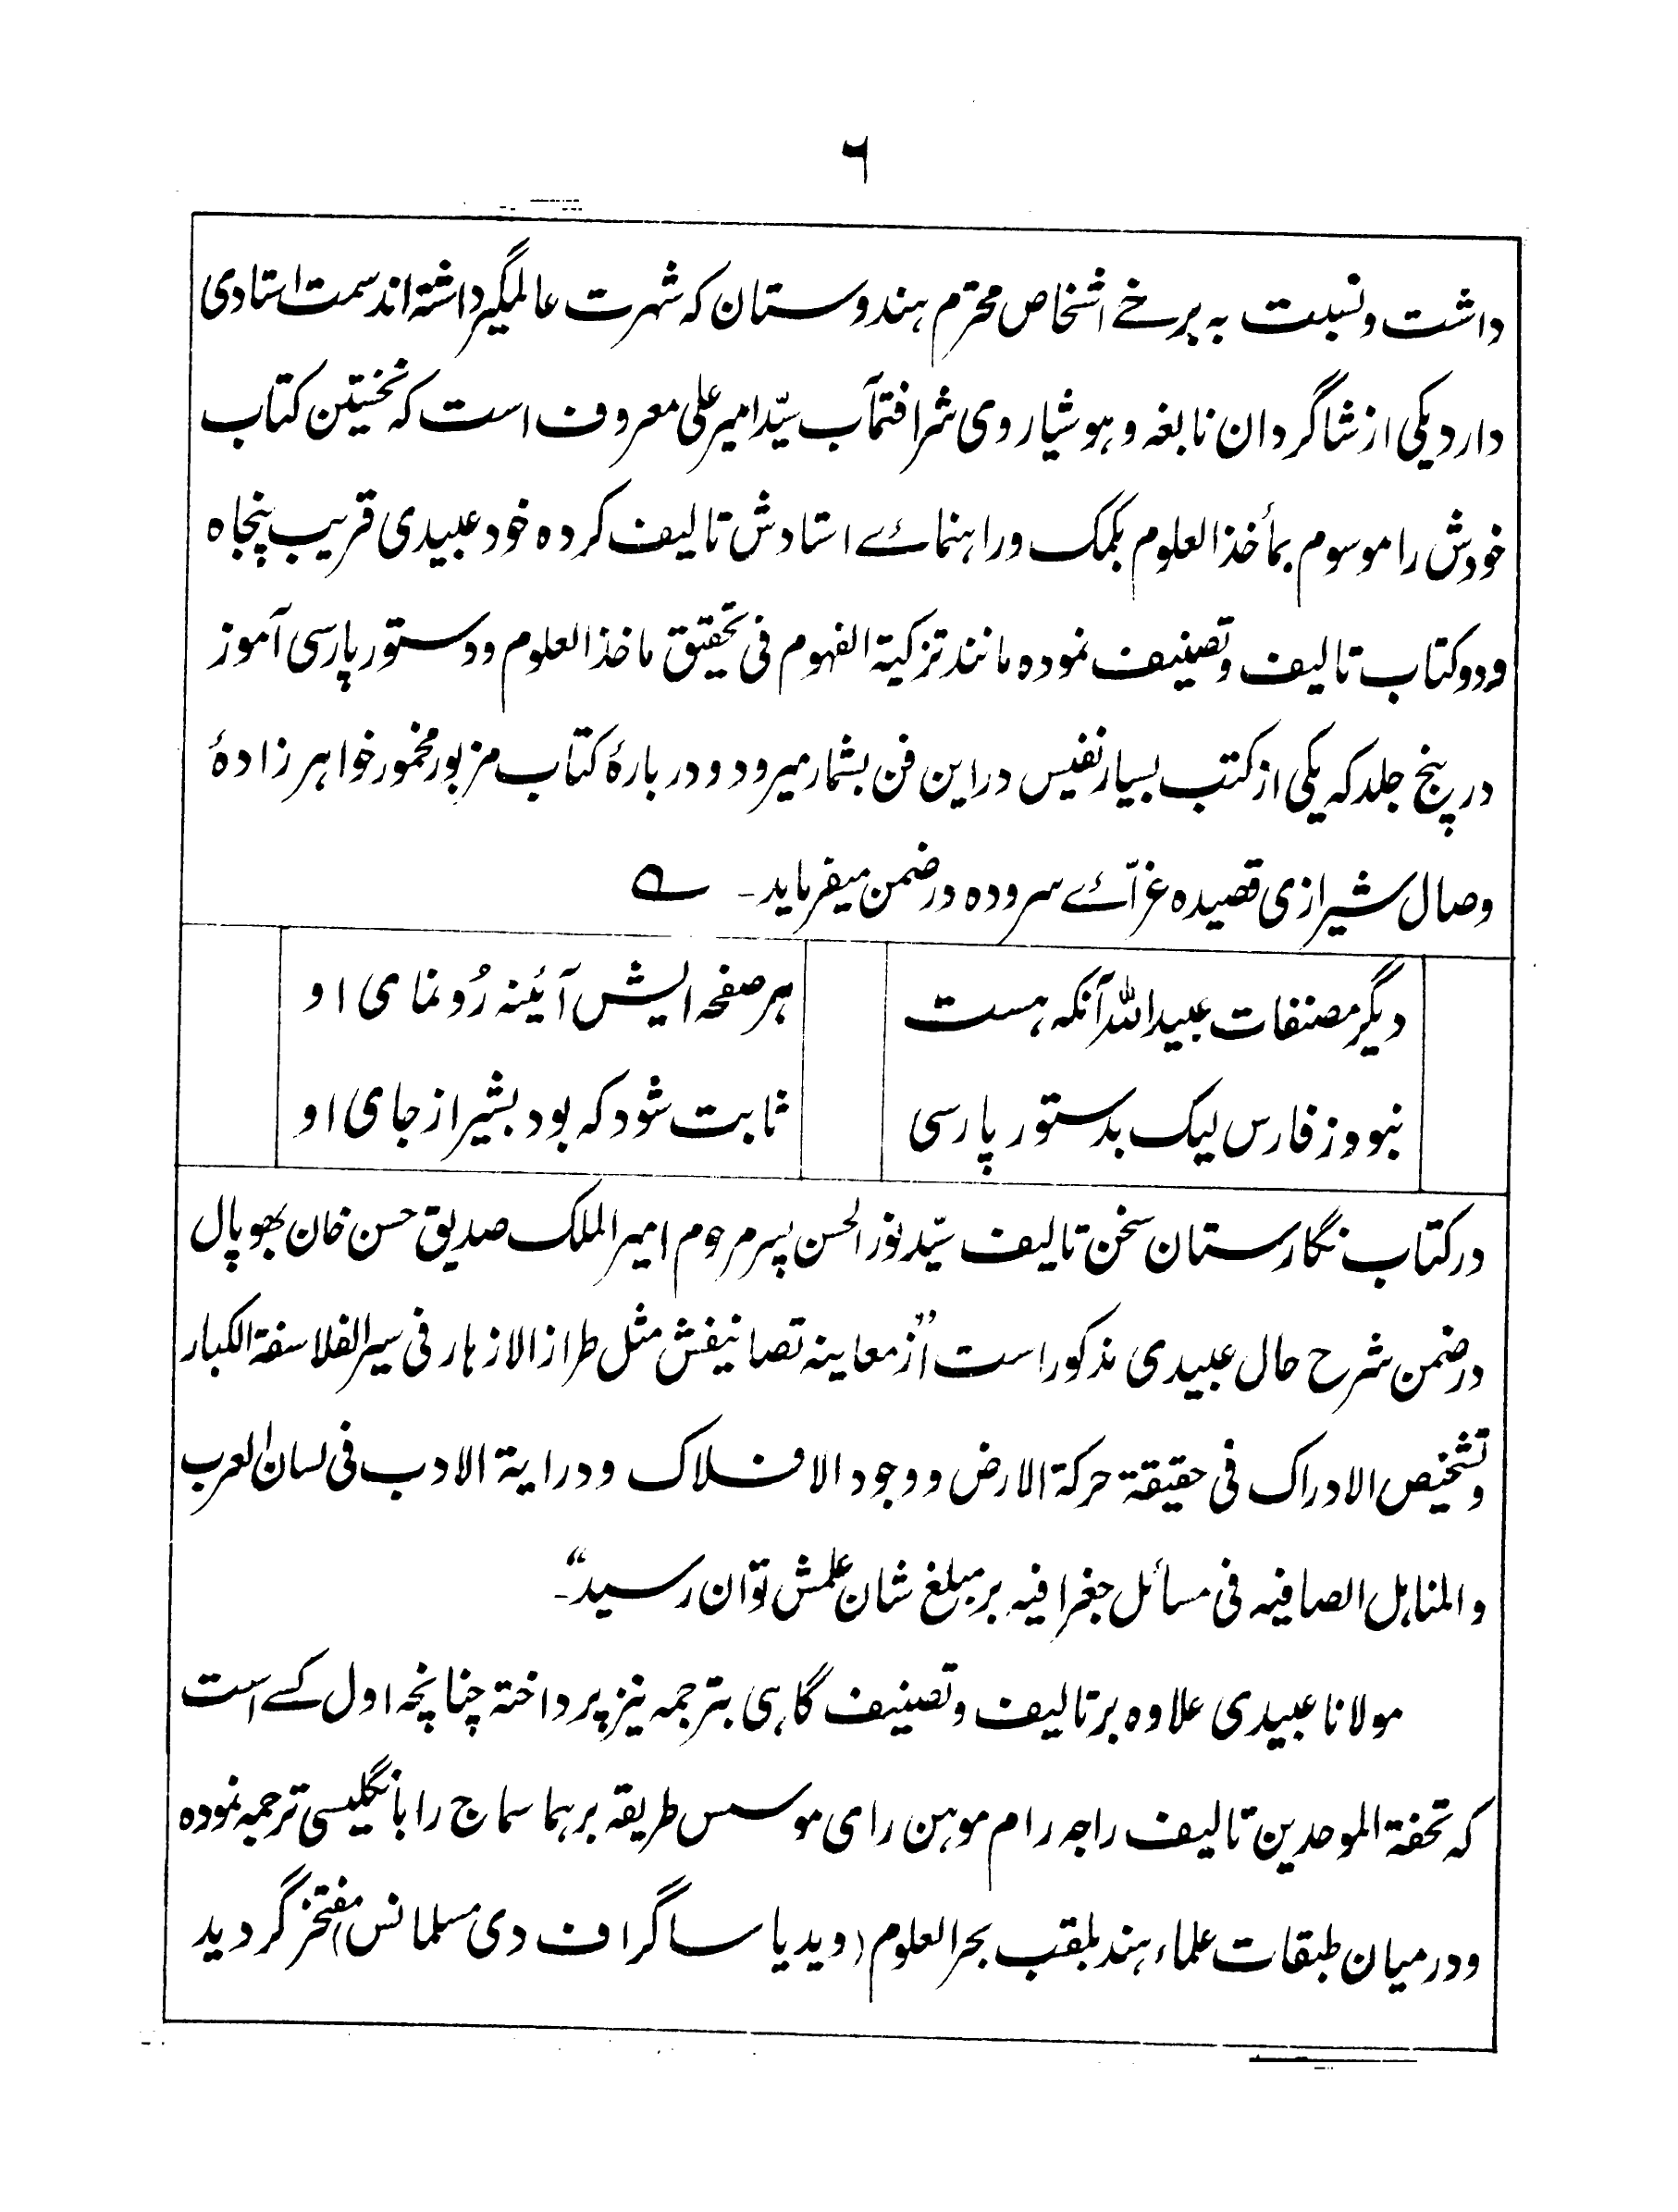 ۶
داشت و نسبت به برخے اشخاص محترم هندوستان که شهرت عالمگیر داشته اند سمت استادی
دارد یکی از شاگردان نابغه و هوشیار وی شرافتمآب سیّد امیر علی معروف است که نخستین کتاب
خودش را موسوم بمأخذ العلوم بکمک و راهنمائے استادش تالیف کرده خود عبیدی قریب پنجاه
و دو کتاب تالیف و تصنیف نموده مانند تزکیة الفهوم فی تحقیق ماخذ العلوم و دستور پارسی آموز
در پنج جلد که یکی از کتب بسیار نفیس در این فن بشمار میرود و دربارهٔ کتاب مزبور مخمور خواهر زادهٔ
وصال شیرازی قصیده غرّائے سروده در ضمن میفرماید۔ ے
دیگر مصنفات عبید الله آنکه هست هر صفحه ایش آئینه رُو نمای او
نبود ز فارس لیک بدستور پارسی ثابت شود که بود بشیراز جای او
در کتاب نگارستان سخن تالیف سیّد نور الحسن پسر مرحوم امیر الملک صدیق حسن خان بهوپال
در ضمن شرح حال عبیدی مذکور است "از معاینه تصانیفش مثل طراز الازهار فی سیر الفلاسفة الکبار
و تشخیص الادراک فی حقیقة حرکة الارض و وجود الافلاک و درایة الادب فی لسان العرب
و المناهل الصافیه فی مسائل جغرافیه بر مبلغ شان علمش توان رسید"۔
مولانا عبیدی علاوه بر تالیف و تصنیف گاهی بترجمه نیز پرداخته چنانچه اول کسے است
که تحفة الموحدین تالیف راجه رام موهن رای موسس طریقه برهما سماج را بانگلیسی ترجمه نموده
و در میان طبقات علماء هند بلقب بحر العلوم (ویدیا ساگر اف دی مسلمانس) مفتخر گردید